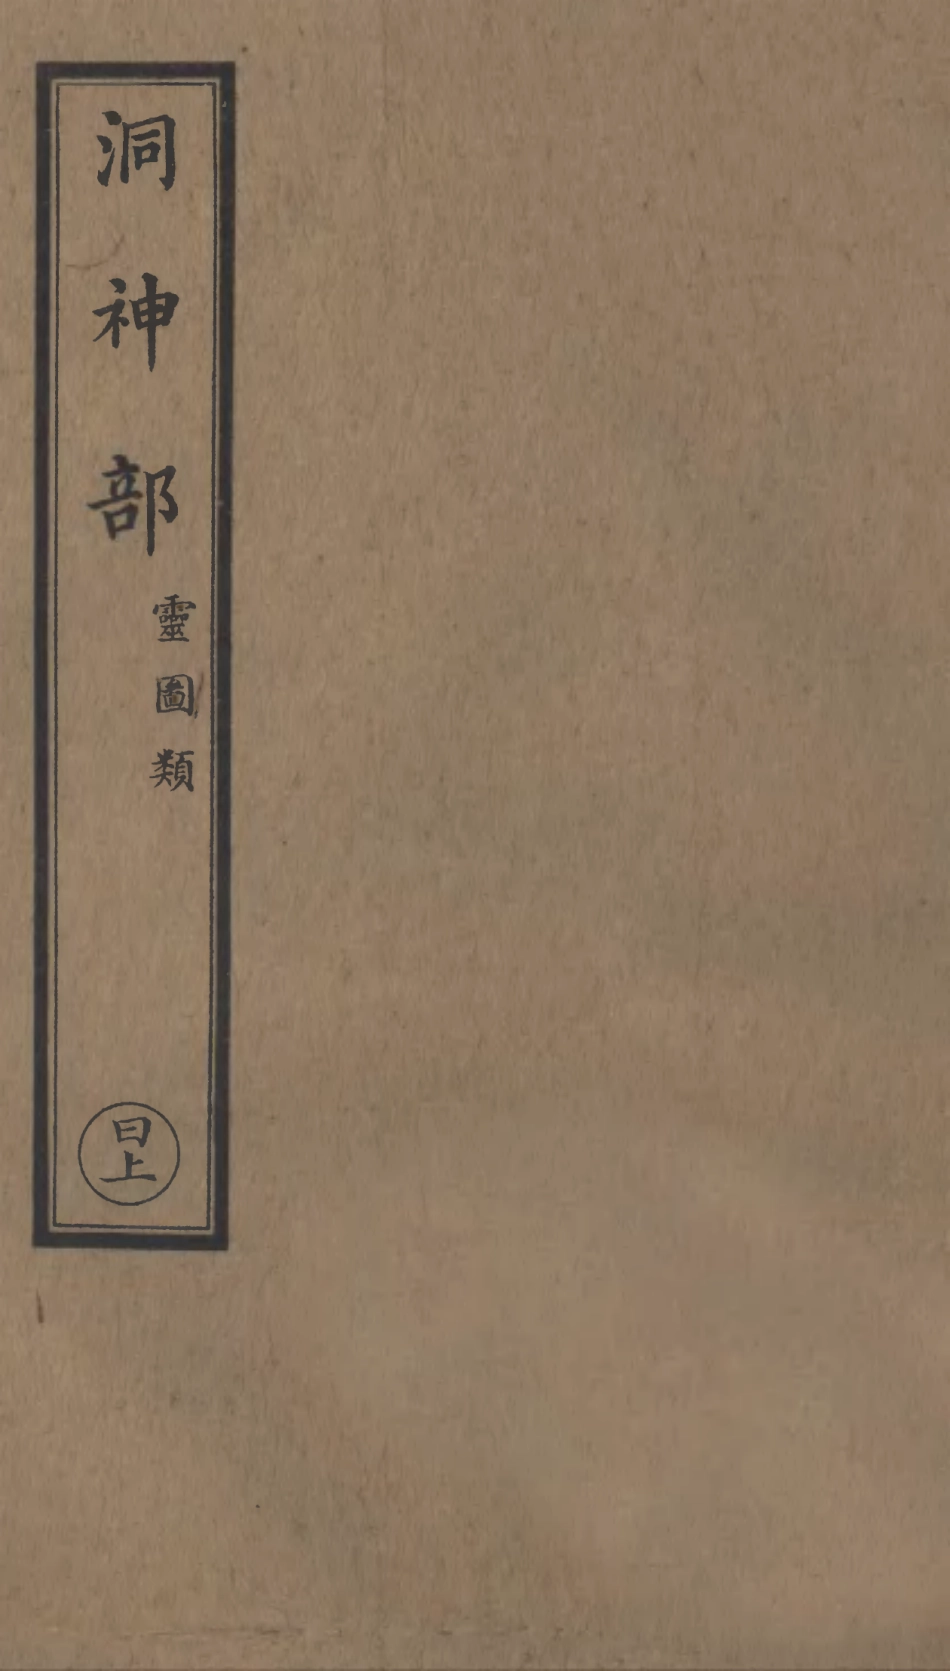 洞神部
靈圖類
曰上